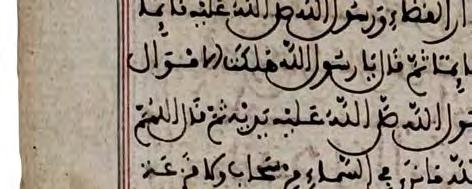 القضاء ورسول الله صلى الله عليه قائما
قائما ثم قال يا رسول الله هلكت الاموال
رسول الله صلى الله عليه يديه ثم قال اللهم
الله ما نرى في السماء من سحاب ولا قزعة